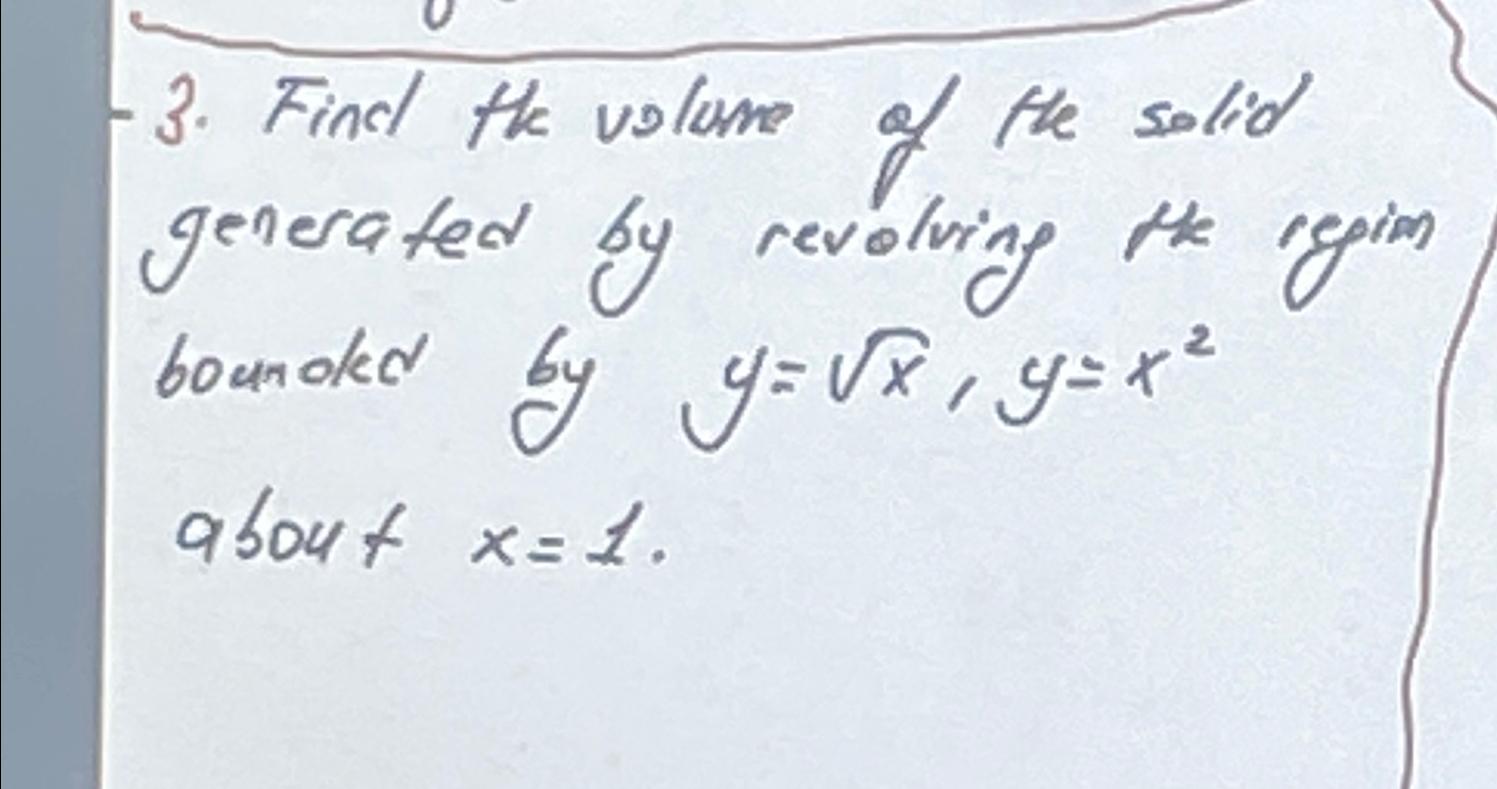 3. Find the volume of the solid
generated by revolving the region
bounded by y=√x, y=x²
about x=1.